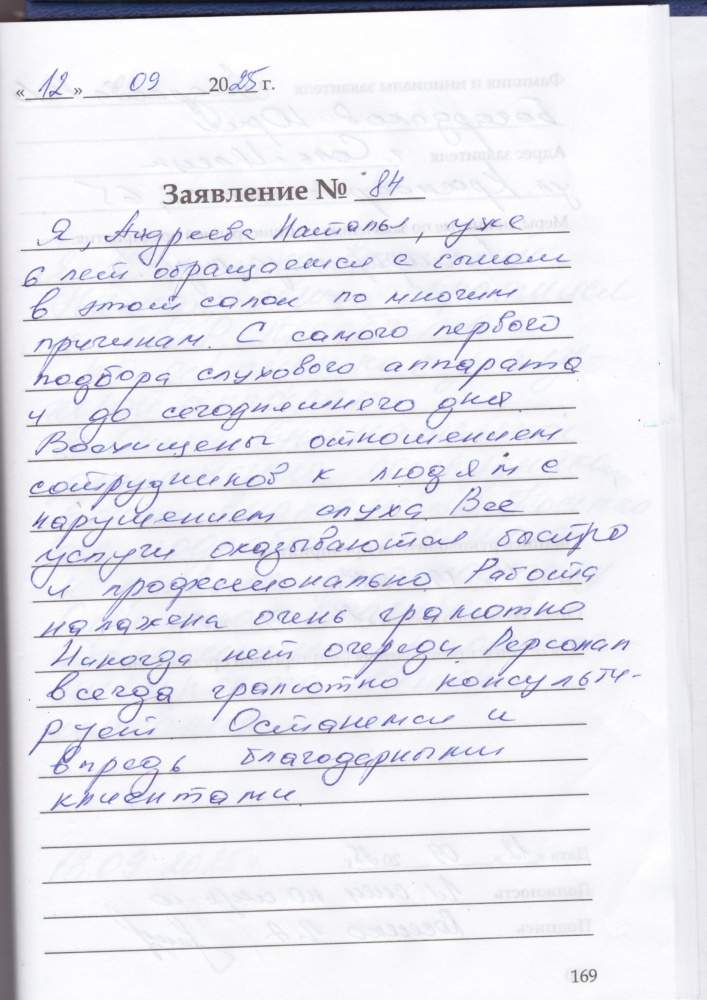 « 12 » 09 2025 г.
Заявление № 84
Я, Андреева Наталья, уже
6 лет обращаемся с сыном
в этот салон по многим
причинам. С самого первого
подбора слухового аппарата
и до сегодняшнего дня
Восхищены отношением
сотрудников к людям с
нарушением слуха Все
услуги оказываются быстро
и профессионально Работа
налажена очень грамотно
Никогда нет очереди Персонал
всегда грамотно консульти-
рует Останемся и
впредь благодарными
клиентами
169